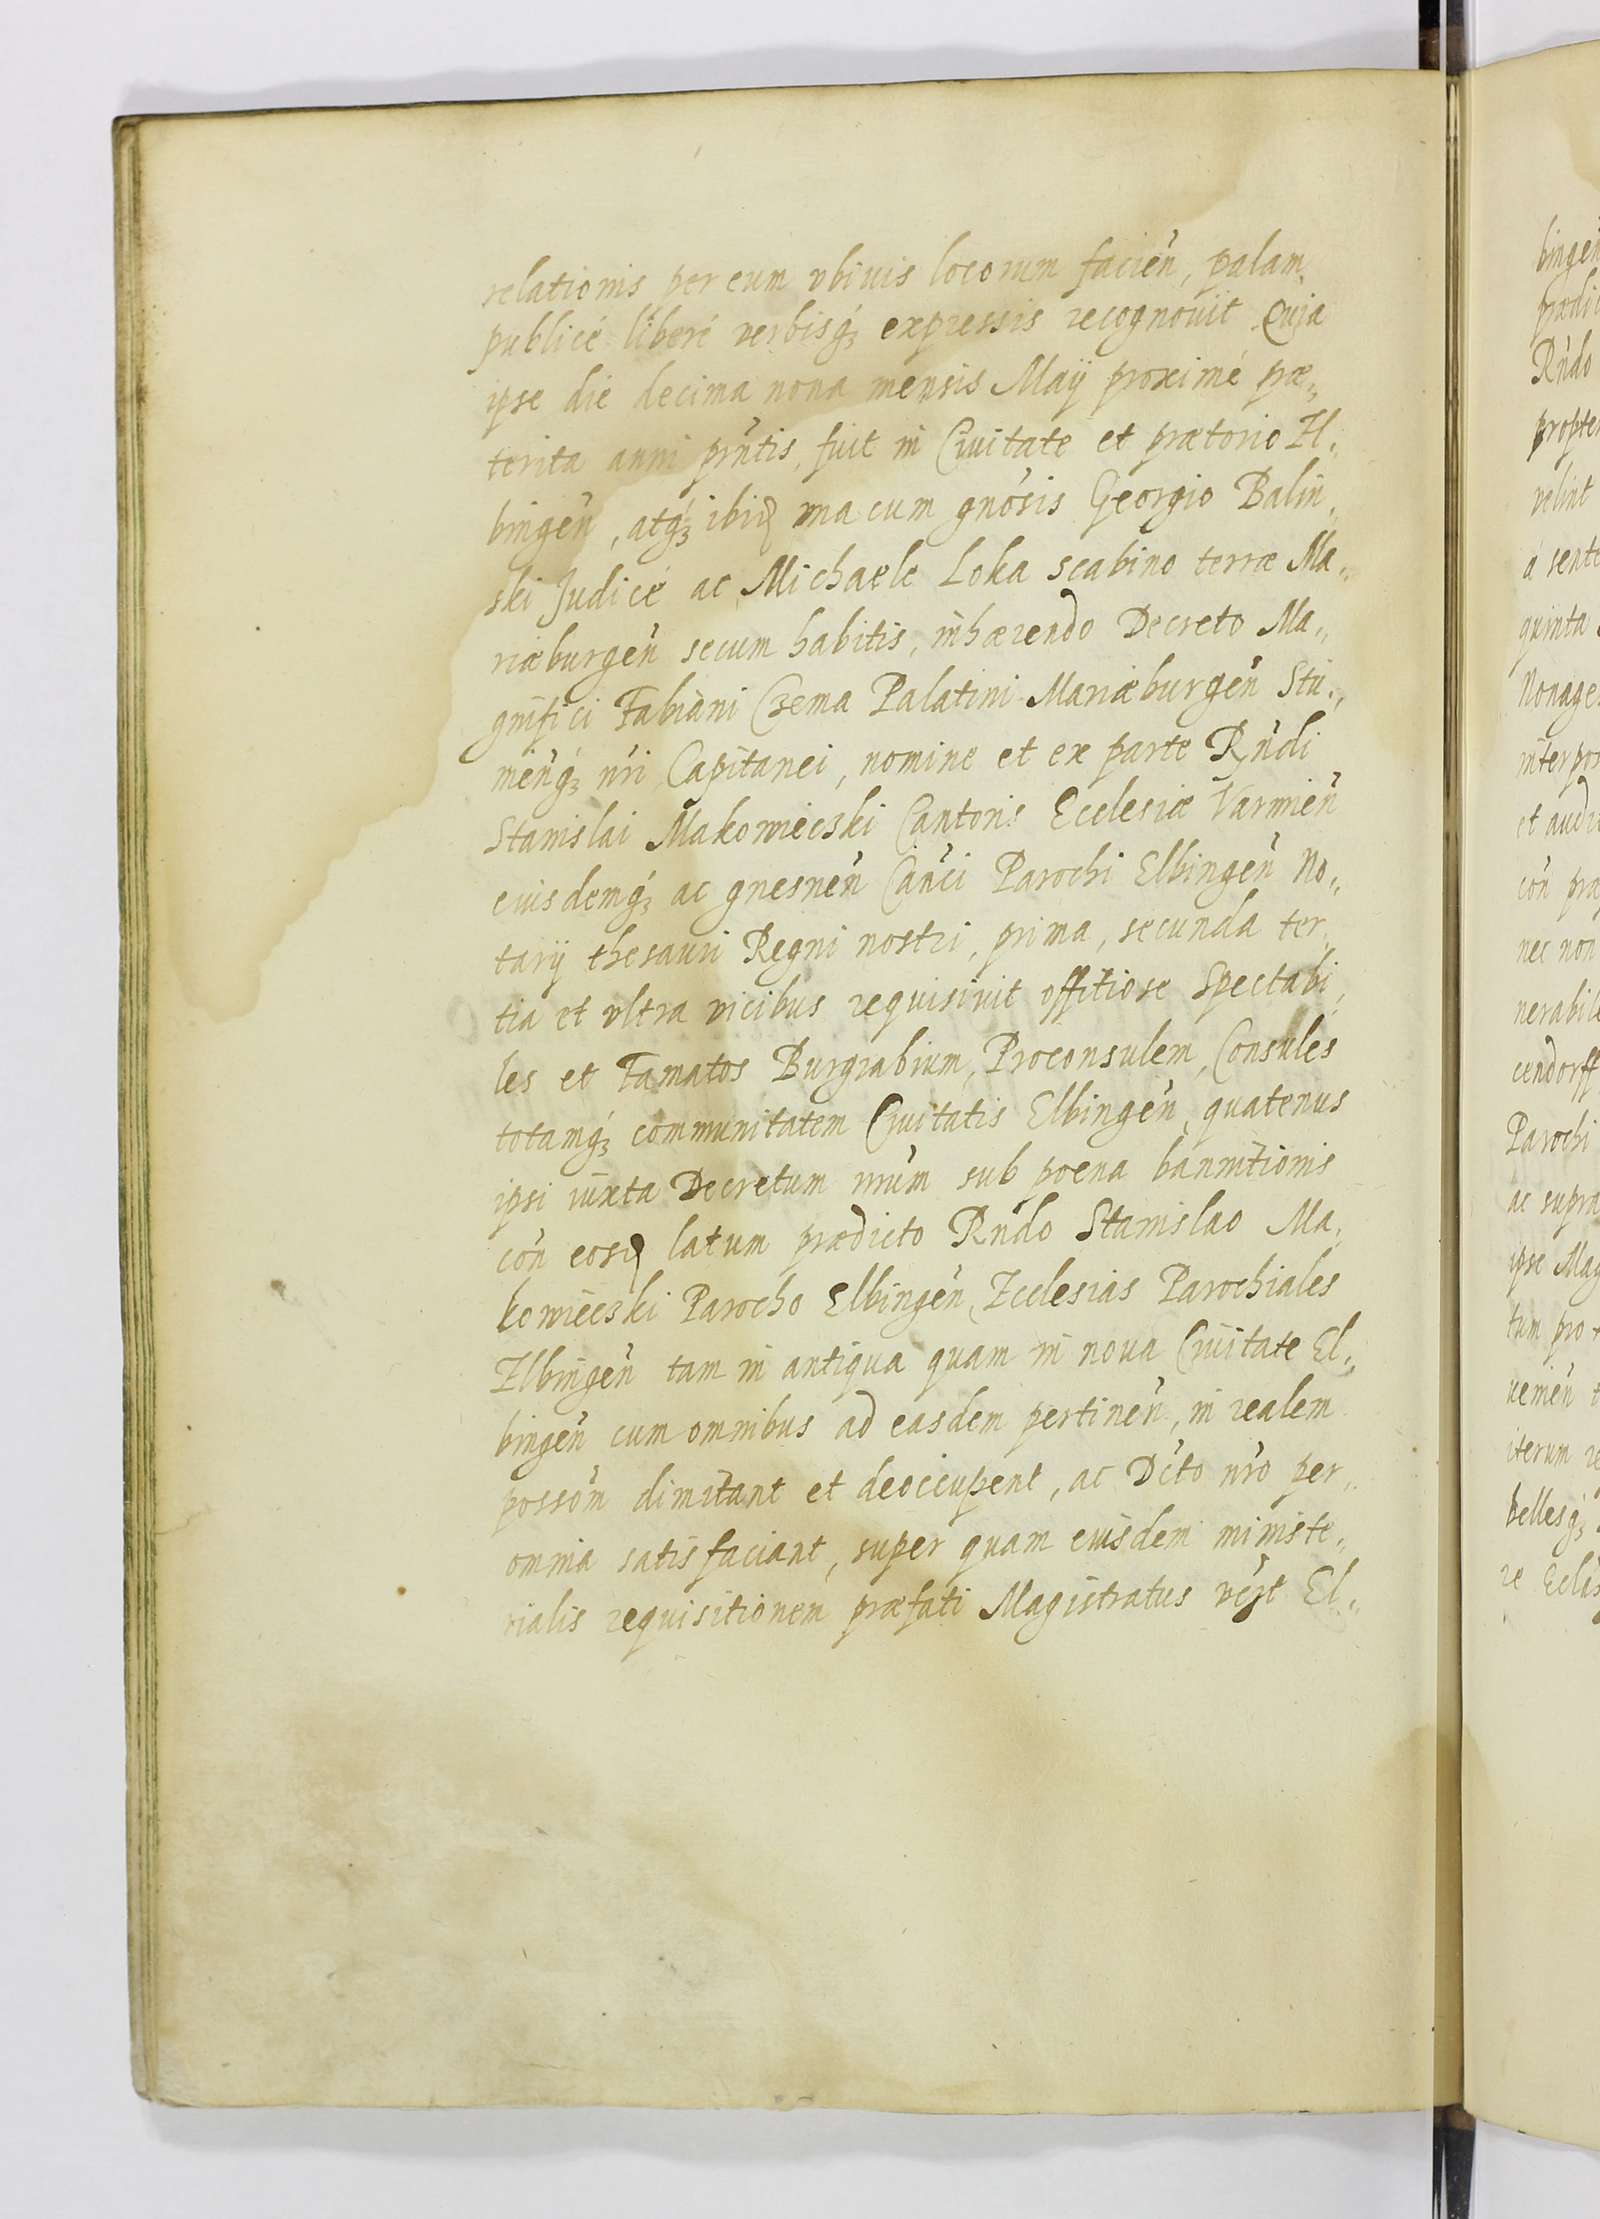 relationis per eum vbiuis locorum facień, palam
publicé liberé verbisq́ʒ expressis recognouit Quja
ipse die decima nona mensis Maij proximé præ„
terita anni prñtis, fuit in Ciuitate et prætorio El„
bingeń, atq́ʒ ibiđ vna cum gnósis Georgio Balin„
ski Judicé ac Michaele Loka scabino terræ Ma„
riæburgeń secum habitis, inhærendo Decreto Ma„
gnifici Fabiani Czema Palatini Mariæburgeń Stu„
meńq́ʒ nri Capitanei, nomine et ex parte Rńdi
Stanislai Makowieczki Cantoris Ecclesiæ Varmień
eiusdemq́ʒ ac gnesneń Cańci Parochi Elbingeń No„
tarij thesauri Regni nostri, prima, secunda ter„
tia et vltra vicibus requisiuit offitiose Spectabi„
les et Famatos Burgrabium, Proconsulem, Consules
totamq́ʒ communitatem Ciuitatis Elbingeń, quatenus
ipsi iuxta Decretum nrum sub poena bannitionis
coń eosđ latum prædicto Rńdo Stanislao Ma„
kowieczki Parocho Elbingeń, Ecclesias Parochiales
Elbingeń tam in antiqua quam in noua Ciuitate El„
bingeń cum omnibus ad easdem pertineń, in realem
possom̃ dimittant et deoccupent, ac Dcto nro per„
omnia satisfaciant, super quam eiusdem ministe„
rialis requisitionem præfati Magistratus vejt El„
bingeń
prædi
Rńdo
propte
velint
á sente
quinta
Nonage
interpos
et audi
coń pra
nec non
nerabile
cendorff
Parochi
ac supra
ipse Mag
tum pro
uenień t
iterum re
bellesq́ʒ
re Eclis